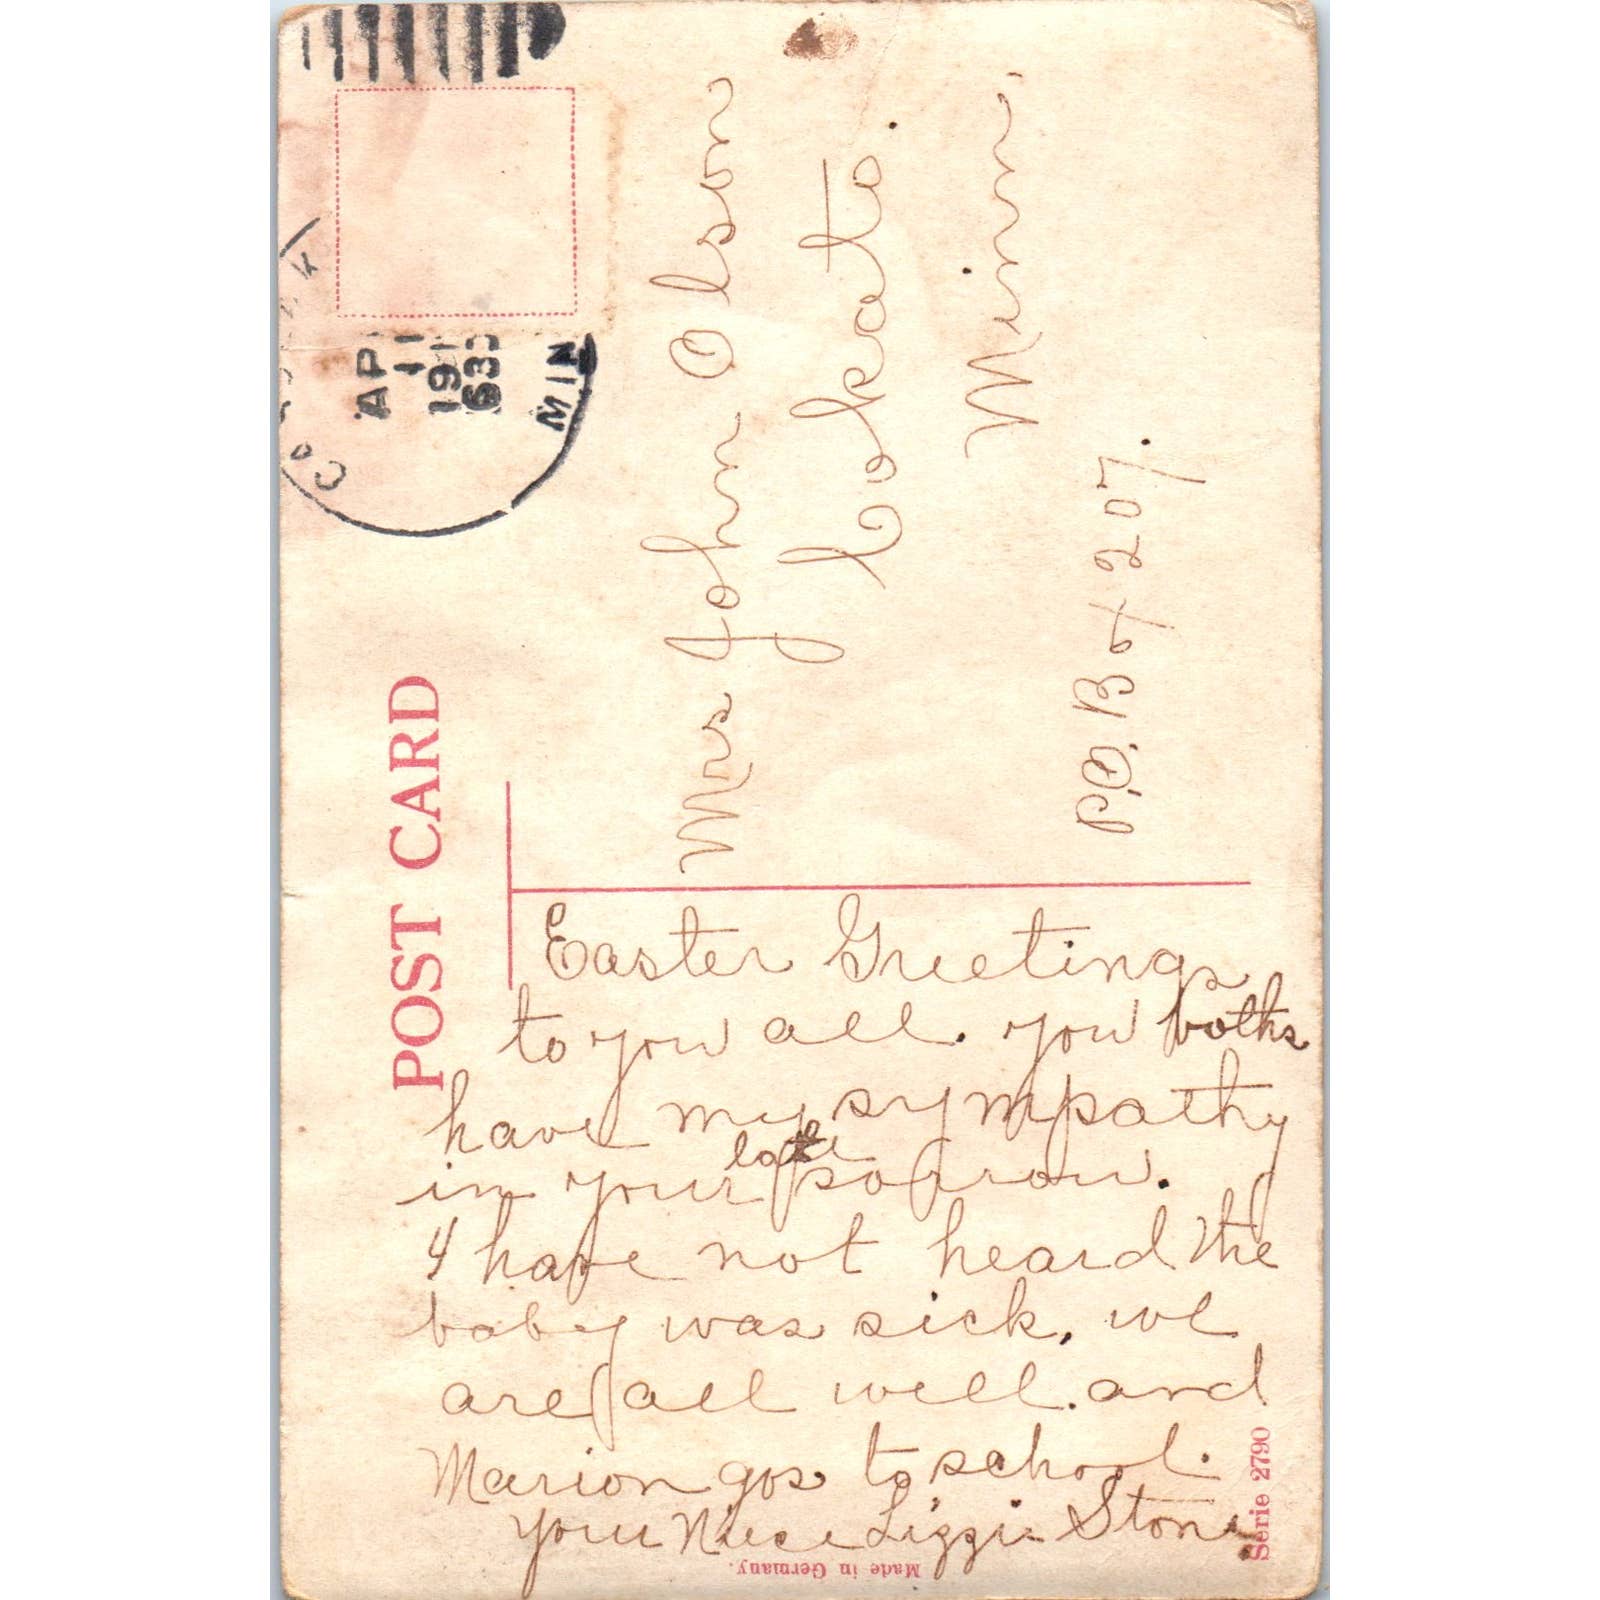 POST CARD
AP
11
191
630
MIN
Mrs John Olson
Cokato.
Minn.
P.O. Box 207.
Easter Greetings
to you all. you boths
have my sympathy
in your late sorrow.
I have not heard the
baby was sick. we
are all well. and
Marion gos to school.
your Niece Lizzie Stone
Serie 2790
Made in Germany.